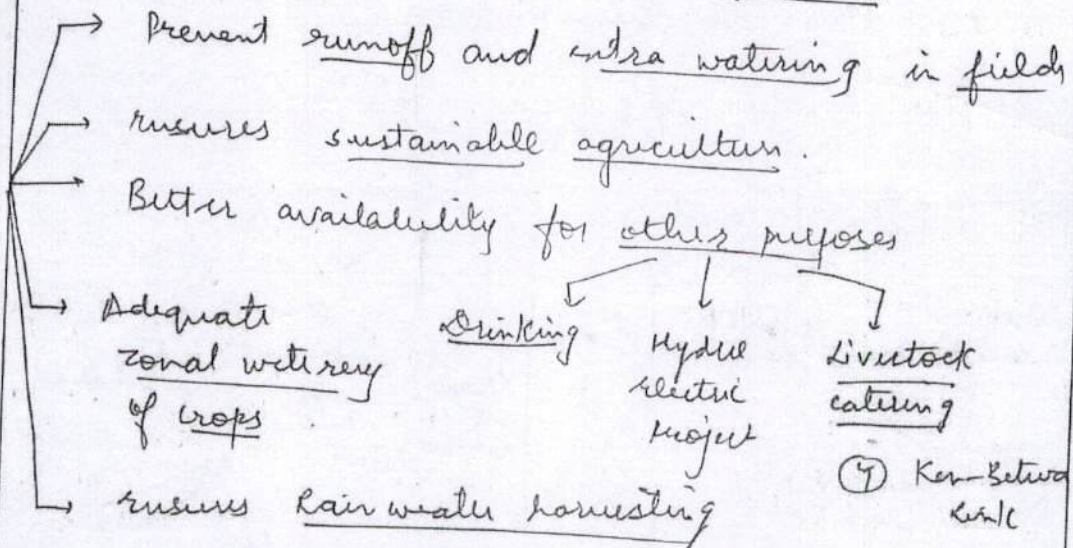 → Prevent runoff and extra watering in fields
→ ensures sustainable agriculture.
→ Better availability for other purposes
→ Adequate zonal watering of crops
Drinking
Hydro electric project
Livestock catering
→ ensures Rain water harvesting
Ken-Betwa Link